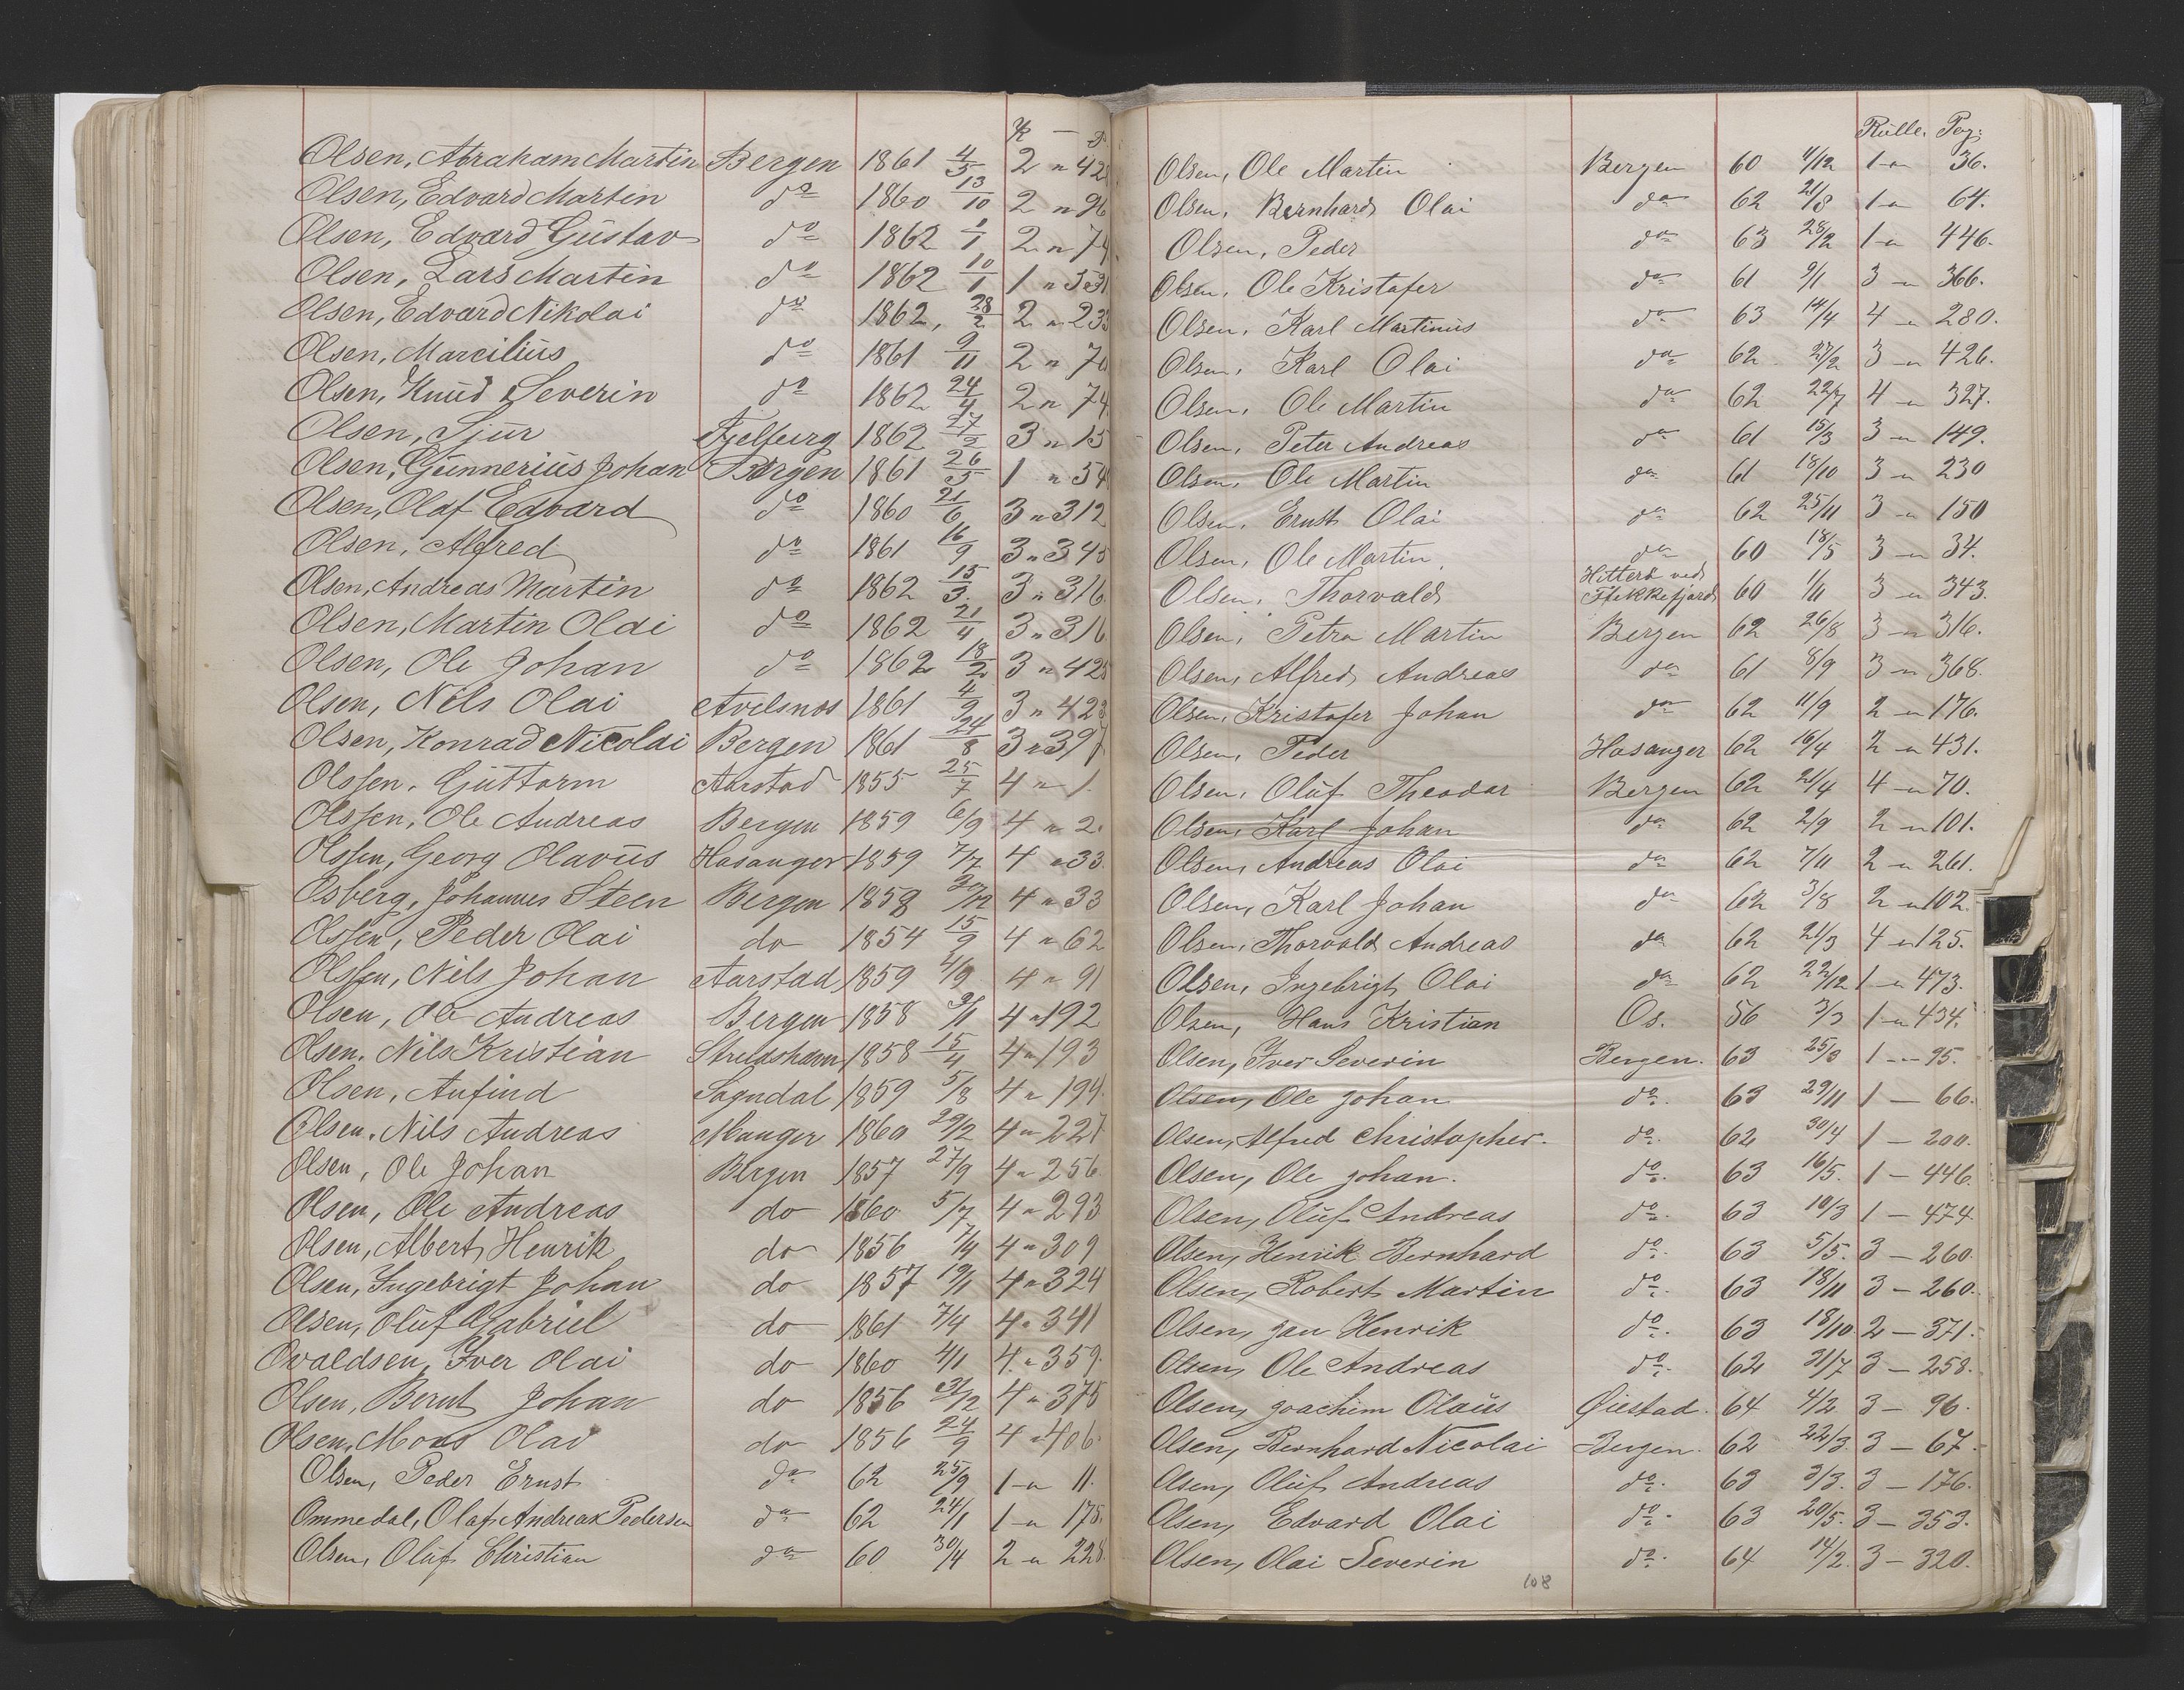 R — P.
Olsen, Abraham Martin Bergen 1861 4/5 2 " 428
Olsen, Edvard Martin do 1860 13/10 2 " 96
Olsen, Edvard Gustav do 1862 1/1 2 " 74
Olsen, Lars Martin do 1862 10/1 1 "
Olsen, Edvard Nikolai do 1862, 28/2 2 " 233
Olsen, Marcilius do 1861 9/11 2 " 70
Olsen, Knud Severin do 1862 24/4 2 " 74
Olsen, Sjur Fjelberg 1862 27/2 3 " 15
Olsen, Gunnerius Johan Bergen 1861 26/5 1 " 54
Olsen, Olaf Edvard do 1860 21/6 3 " 312
Olsen, Alfred do 1861 16/9 3 " 345
Olsen, Andreas Martin do 1862 15/3. 3 " 316.
Olsen, Martin Olai do 1862 21/4 3 " 316
Olsen, Ole Johan do 1862 18/2 3 " 425
Olsen, Nils Olai Avelsnæs 1861 4/9 3 " 423
Olsen, Konrad Nicolai Bergen 1861 24/8 3 " 397
Olssen, Guttorm Aarstad 1855 25/7 4 " 1.
Olssen, Ole Andreas Bergen 1859 6/9 4 " 2.
Olssen, Georg Olavus Hosanger 1859 7/7 4 " 33.
Osberg, Johannes Steen Bergen 1858 4 " 33
Olssen, Peder Olai do 1854 15/9 4 " 62
Olssen, Nils Johan Aarstad 1859 4/9 4 " 91
Olsen, Ole Andreas Bergen 1858 4 " 192
Olsen. Nils Kristian 1858 15/4 4 " 193
Olsen, Anfind Sogndal 1859 5/8 4 " 194.
Olsen. Nils Andreas Manger 1860 29/2 4 " 227
Olsen, Ole Johan Bergen 1857 27/9 4 " 256
Olsen, Ole Andreas do 1860 5/7 4 " 293
Olsen, Albert Henrik do 1856 7/4 4 " 309
Olsen, Ingebrigt Johan do 1857 19/1 4 " 324
Olsen, Oluf Gabriel do 1861 7/4 4 " 341
Ovaldsen, Iver Olai do 1860 4/1 4 " 359.
Olsen, Bernt Johan do 1856 4 " 375
Olsen, Mons Olai do 1856 24/9 4 " 406.
Olsen, Peder Ernst do 62 25/9 1 " 11.
Ommedal, Olaf Andreas Pedersen do 62 24/1 1 " 175.
Olsen, Oluf Christian do 60 30/4 2 " 228.
Rulle. Pag:
Olsen, Ole Martin Bergen 60 4/12 1 " 36.
Olsen, Bernhard Olai do 62 21/8 1 " 64.
Olsen, Peder do 63 28/2 1 " 446.
Olsen, Ole Kristofer do 61 9/1 3 " 366.
Olsen, Karl Martinus do 63 14/4 4 " 280.
Olsen, Karl Olai do 62 27/2 3 " 426.
Olsen, Ole Martin do 62 22/7 4 " 327.
Olsen, Peter Andreas do 61 15/3 3 " 149.
Olsen, Ole Martin do 61 18/10 3 " 230
Olsen, Ernst Olai do 62 25/11 3 " 150
Olsen, Ole Martin. do 60 18/5 3 " 34.
Olsen, Thorvald Hitterø ved Flekkefjord 60 1/11 3 " 343.
Olsen, Petra Martin Bergen 62 26/8 3 " 316.
Olsen, Alfred Andreas do 61 8/9 3 " 368.
Olsen, Kristofer Johan do 62 11/9 2 " 176.
Olsen, Peder Hosanger 62 16/4 2 " 431.
Olsen, Oluf Theodor Bergen 62 21/4 4 " 70.
Olsen, Karl Johan do 62 2/9 2 " 101.
Olsen, Andreas Olai do 62 7/11 2 " 261.
Olsen, Karl Johan do 62 3/8 2 " 102.
Olsen, Thorvald Andreas do 62 21/3 4 " 125.
Olsen, Ingebrigt Olai do 62 22/12 1 " 473.
Olsen, Hans Kristian Os. 56 3/3 1 " 434.
Olsen, Iver Severin Bergen. 63 25/8 1 — 95.
Olsen, Ole Johan do. 63 29/11 1 — 66.
Olsen, Alfred Christopher. do. 62 30/4 1 — 200.
Olsen, Ole Johan. do. 63 16/5. 1 — 446.
Olsen, Oluf Andreas do. 63 10/3 1 — 474.
Olsen, Henrik Bernhard do. 63 5/5. 3 — 260.
Olsen, Robert Martin do. 63 18/11 3 — 260.
Olsen, Jan Henrik do. 63 18/10 2 — 371.
Olsen, Ole Andreas do. 62 31/7 3 — 258.
Olsen, Joachim Olaus Øiestad. 64 4/2 3 — 96.
Olsen, Bernhard Nicolai Bergen. 62 22/3. 3 — 67.
Olsen, Oluf Andreas do. 63 3/3. 3 — 176.
Olsen, Edvard Olai do. 63 20/5. 3 — 353.
Olsen, Olai Severin do. 64 14/2. 3 — 320.
108